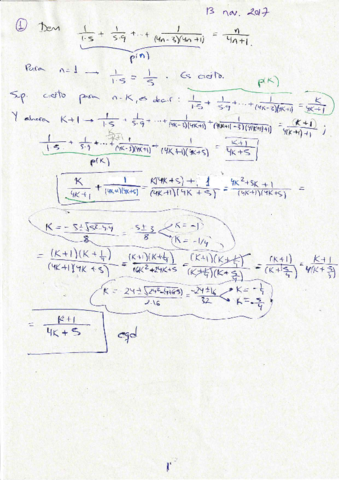 13 nov. 2017
① Dem 1/1·5 + 1/5·9 + ... + 1/(4n-3)(4n+1) = n/4n+1.
p(n)
Para n=1 → 1/1·5 = 1/5. Es cierto.
p(K)
Sup. cierto para n=K, es decir: 1/1·5 + 1/5·9 + ... + 1/(4K-3)(4K+1) = K/4K+1
Y ahora K+1 → 1/1·5 + 1/5·9 + ... + 1/(4K-3)(4K+1) + 1/(4(K+1)-3)(4(K+1)+1) = (K+1)/4(K+1)+1 ;
1/1·5 + 1/5·9 + ... + 1/(4K-3)(4K+1) + 1/(4K+1)(4K+5) = K+1/4K+5
p(K)
K/4K+1 + 1/(4K+1)(4K+5) = K(4K+5)+1/(4K+1)(4K+5) = 4K²+5K+1/(4K+1)(4K+5) =
K = -5±√5²-4·4/8 = -5±3/8 K=-1
K=-1/4
= (K+1)(K+1/4)/(4K+1)(4K+5) = (K+1)(K+1/4)/16K²+24K+5 = (K+1)(K+1/4)/(K+1/4)(K+5/4) = (K+1)/(K+5/4) = K+1/4(K+5/4)
K = -24±√24²-4·16·5/2·16 = -24±16/32 K=-1/4
K=-5/4
= K+1/4K+5 cqd